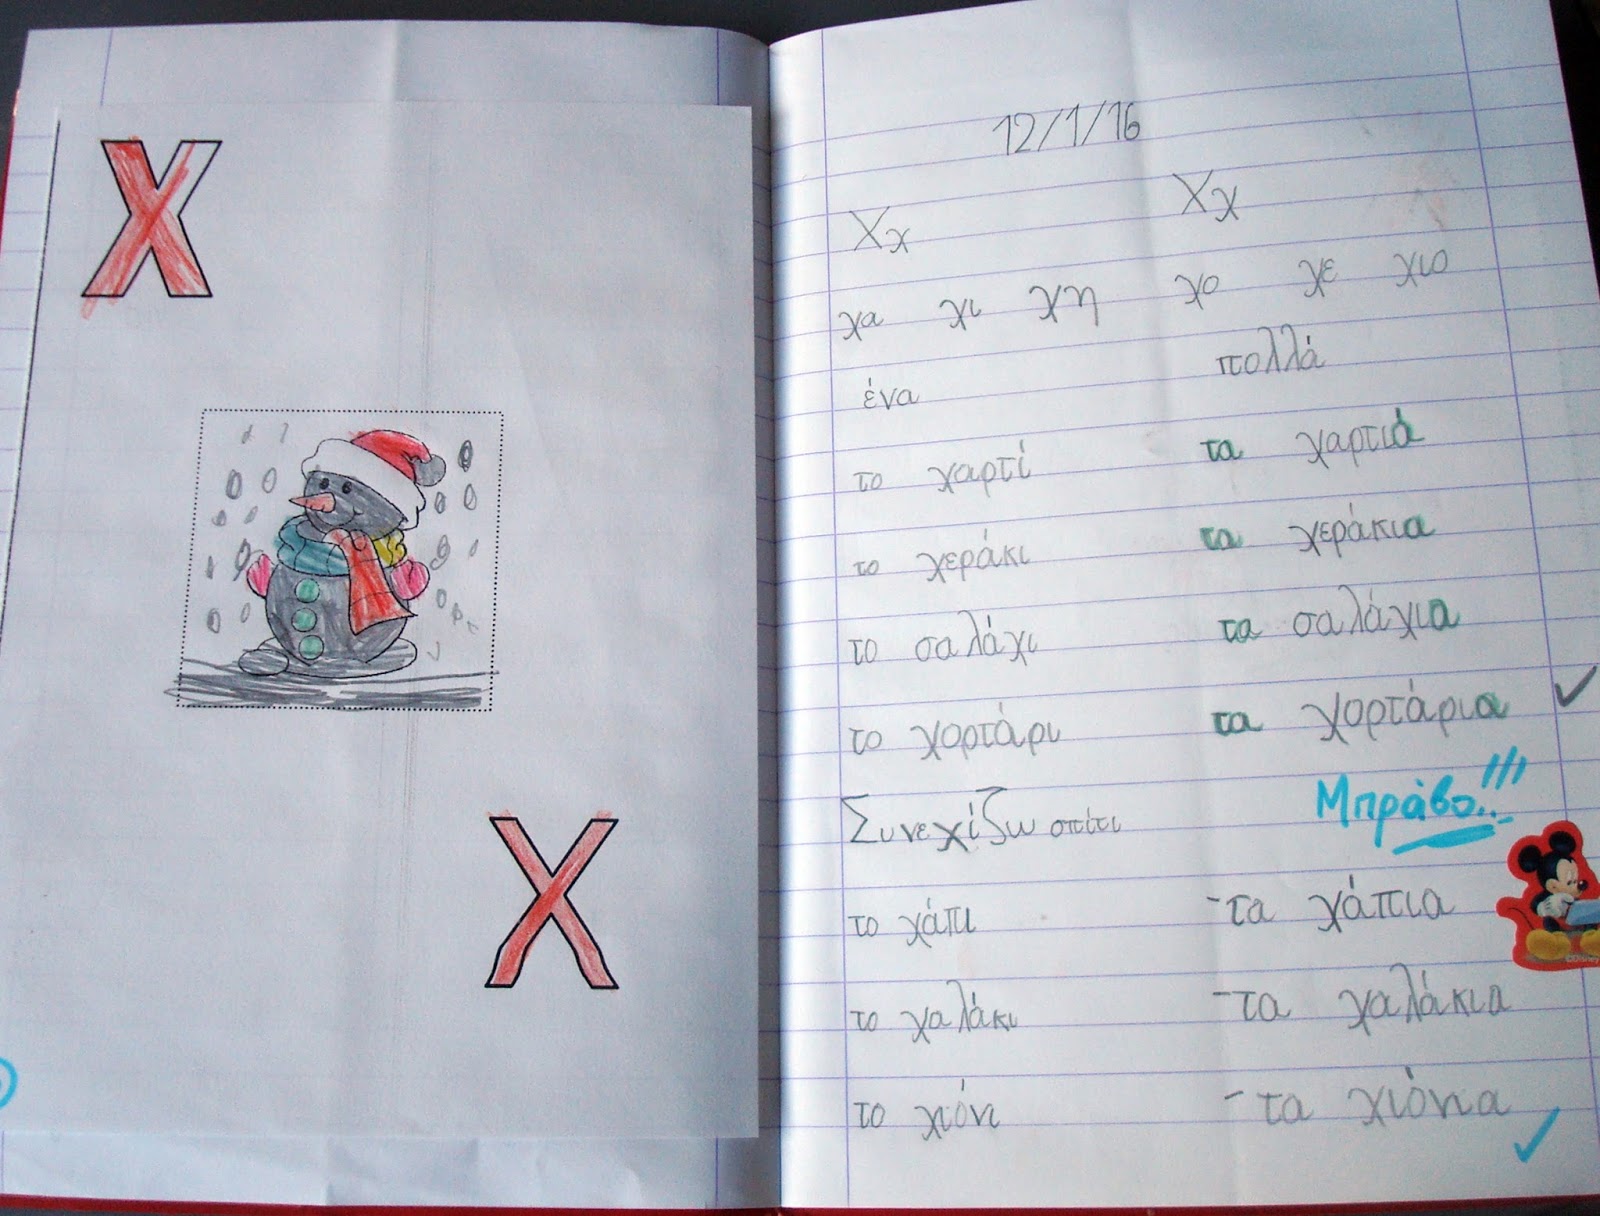 Χ
Χ
12/1/16
Χχ Χχ
χα χι χη χο χε χιο
ένα πολλά
το χαρτί τα χαρτιά
το χεράκι τα χεράκια
το σαλάχι τα σαλάχια
το χορτάρι τα χορτάρια
Μπράβο..!!!
Συνεχίζω σπίτι
το χάπι -τα χάπια
το χαλάκι -τα χαλάκια
το χιόνι -τα χιόνια